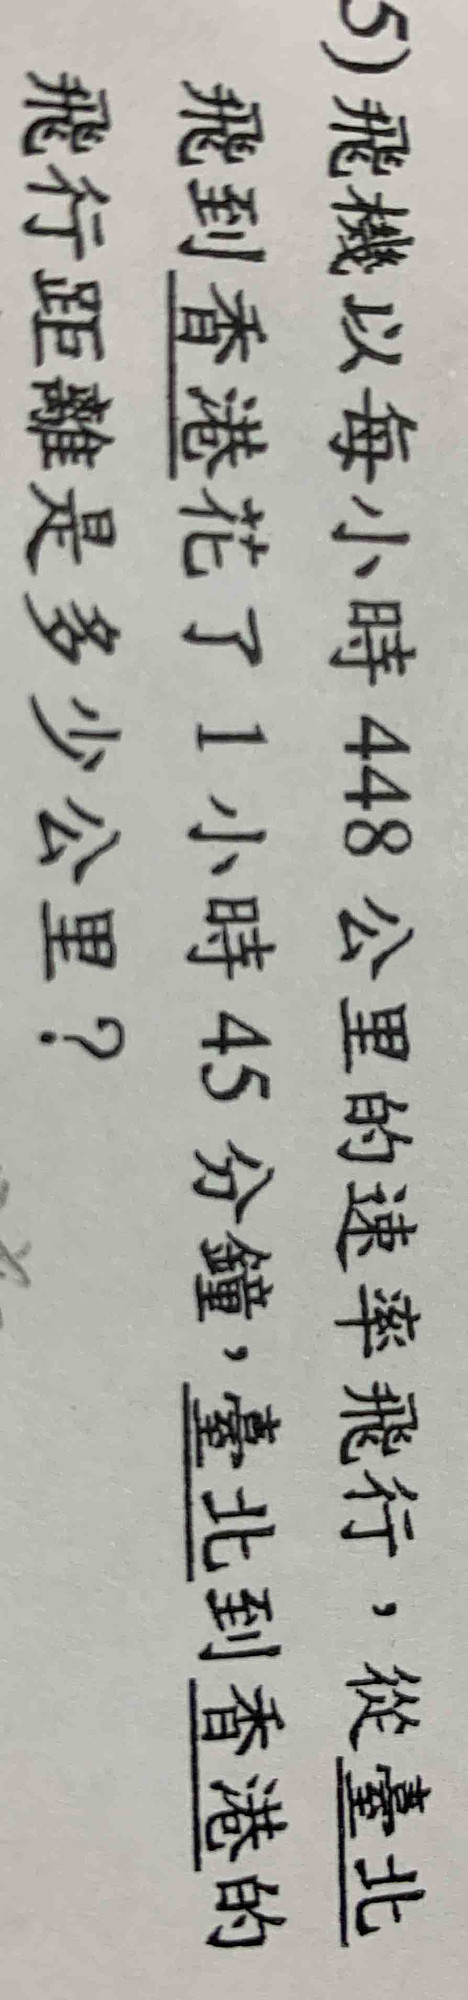 5) 飛機以每小時 448 公里的速率飛行，從臺北
飛到香港花了 1 小時 45 分鐘，臺北到香港的
飛行距離是多少公里？